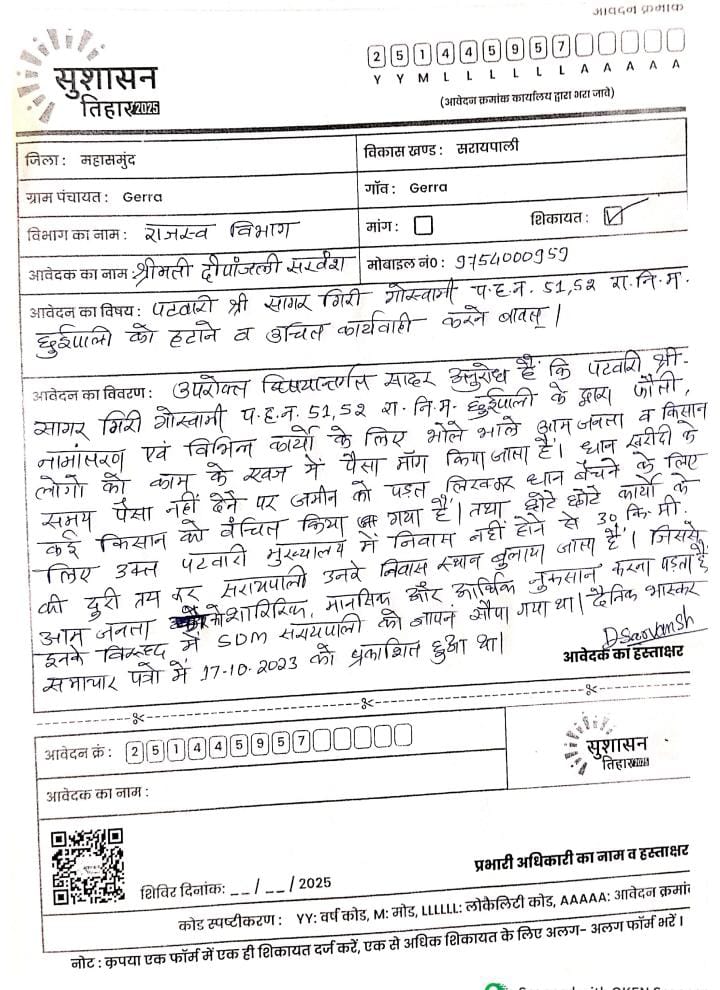 आवेदन क्रमांक
सुशासन
तिहार 2025
2 5 1 4 4 5 9 5 7
Y Y M L L L L L L A A A A A
(आवेदन क्रमांक कार्यालय द्वारा भरा जावे)
जिला : महासमुंद
विकास खण्ड : सरायपाली
ग्राम पंचायत : Gerra
गाँव : Gerra
विभाग का नाम : राजस्व विभाग
मांग :
शिकायत : ✓
आवेदक का नाम : श्रीमती दीपांजली सरवंश
मोबाइल नं0 : 9754000959
आवेदन का विषय : पटवारी श्री सागर गिरी गोस्वामी प.ह.न. 51,52 रा.नि.म.
छुईपाली को हटाने व उचित कार्यवाही करने बाबत् |
आवेदन का विवरण : उपरोक्त विषयान्तर्गत सादर अनुरोध है कि पटवारी श्री-
सागर गिरी गोस्वामी प.ह.न. 51,52 रा.नि.म. छुईपाली के द्वारा फौती,
नामांतरण एवं विभिन कार्यो के लिए भोले भाले आम जनता व किसान
लोगो को काम के एवज में पैसा माँग किया जाता है। धान खरीदी के
समय पैसा नहीं देने पर जमीन को पड़त लिखकर धान बेंचने के लिए
कई किसान को वंचित किया गया है। तथा छोटे छोटे कार्यो के
लिए उक्त पटवारी मुख्यालय में निवास नहीं होने से 30 कि.मी.
की दुरी तय कर सरायपाली उनके निवास स्थान बुलाया जाता है। जिससे
आम जनता को शारिरिक, मानसिक और आर्थिक नुकसान करना पड़ता है
इनके विरुद्ध में SDM सरायपाली को ज्ञापन सौपा गया था। दैनिक भास्कर
समाचार पत्रो में 17-10-2023 को प्रकाशित हुआ था।
DSarvansh
आवेदक का हस्ताक्षर
आवेदन क्रं : 2 5 1 4 4 5 9 5 7
सुशासन
तिहार 2025
आवेदक का नाम :
प्रभारी अधिकारी का नाम व हस्ताक्षर
शिविर दिनांक: _ _ / _ _ / 2025
कोड स्पष्टीकरण : YY: वर्ष कोड, M: मोड, LLLLLL: लोकैलिटी कोड, AAAAA: आवेदन क्रमां
नोट : कृपया एक फॉर्म में एक ही शिकायत दर्ज करें, एक से अधिक शिकायत के लिए अलग- अलग फॉर्म भरें ।